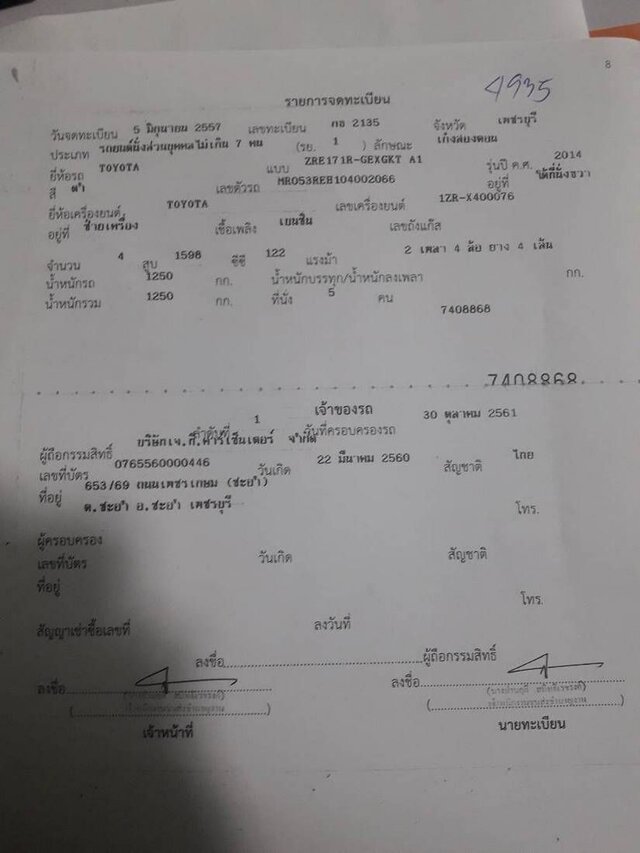 8
4935
รายการจดทะเบียน
วันจดทะเบียน 5 มิถุนายน 2557 เลขทะเบียน กธ 2135 จังหวัด เพชรบุรี
ประเภท รถยนต์นั่งส่วนบุคคลไม่เกิน 7 คน (รย. 1 ) ลักษณะ เก๋งสองตอน
ยี่ห้อรถ TOYOTA แบบ ZRE171R-GEXGKT A1 รุ่นปี ค.ศ. 2014
สี ดำ เลขตัวรถ MR053REH104002066 อยู่ที่ ใต้ที่นั่งขวา
ยี่ห้อเครื่องยนต์ TOYOTA เลขเครื่องยนต์ 1ZR-X400076
อยู่ที่ ซ้ายเครื่อง เชื้อเพลิง เบนซิน เลขถังแก๊ส
จำนวน 4 สูบ 1598 ซีซี 122 แรงม้า 2 เพลา 4 ล้อ ยาง 4 เส้น
น้ำหนักรถ 1250 กก. น้ำหนักบรรทุก/น้ำหนักลงเพลา กก.
น้ำหนักรวม 1250 กก. ที่นั่ง 5 คน
7408868
7408868
เจ้าของรถ
ลำดับที่ 1 วันที่ครอบครองรถ 30 ตุลาคม 2561
ผู้ถือกรรมสิทธิ์ บริษัทเจ.ที.คาร์เซ็นเตอร์ จำกัด
เลขที่บัตร 0765560000446 วันเกิด 22 มีนาคม 2560 สัญชาติ ไทย
ที่อยู่ 653/69 ถนนเพชรเกษม (ชะอำ)
ต.ชะอำ อ.ชะอำ เพชรบุรี โทร.
ผู้ครอบครอง
เลขที่บัตร วันเกิด สัญชาติ
ที่อยู่
โทร.
สัญญาเช่าซื้อเลขที่ ลงวันที่
ลงชื่อ ผู้ถือกรรมสิทธิ์
ลงชื่อ ลงชื่อ
เจ้าหน้าที่ นายทะเบียน